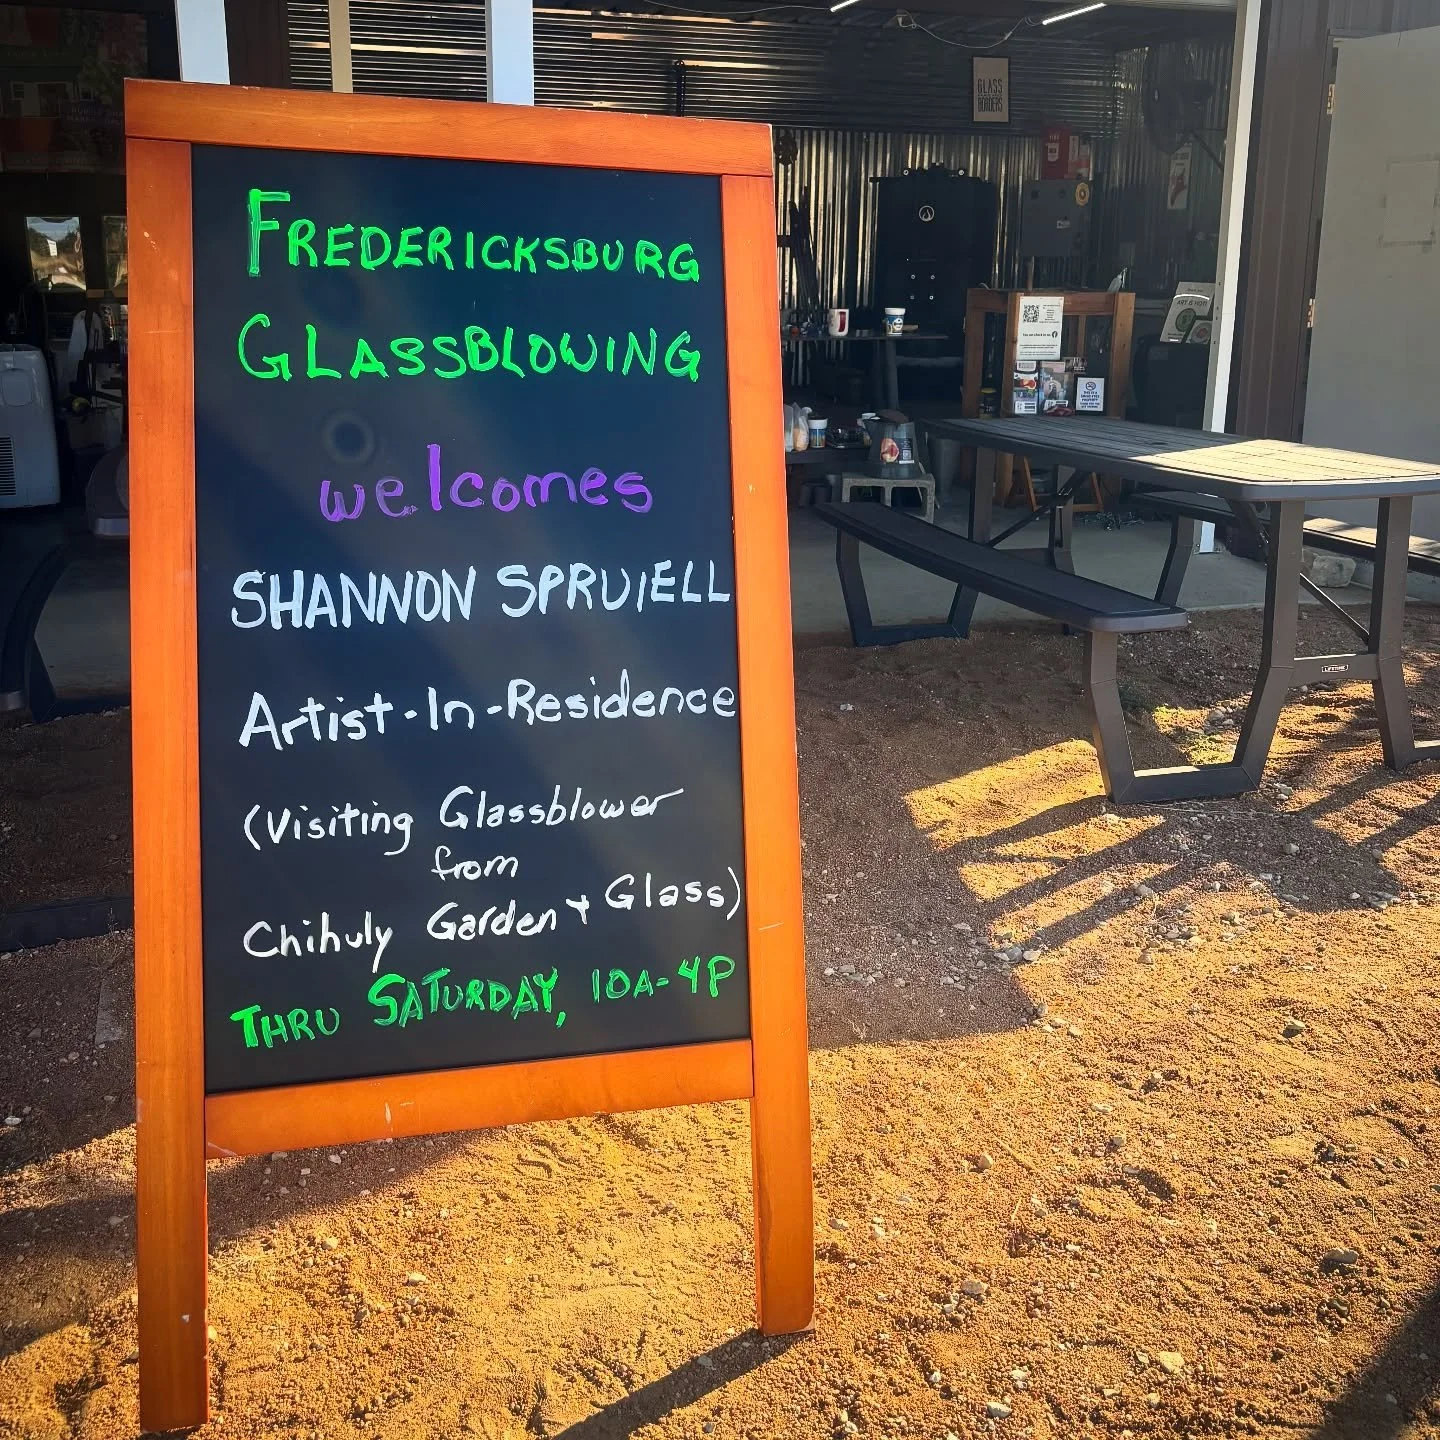 FREDERICKSBURG
GLASSBLOWING
welcomes
SHANNON SPRUIELL
Artist-In-Residence
(Visiting Glassblower
from
Chihuly Garden + Glass)
THRU SATURDAY, 10A-4P
GLASS
BORDERS
ART IS HOT!
LIFETIME